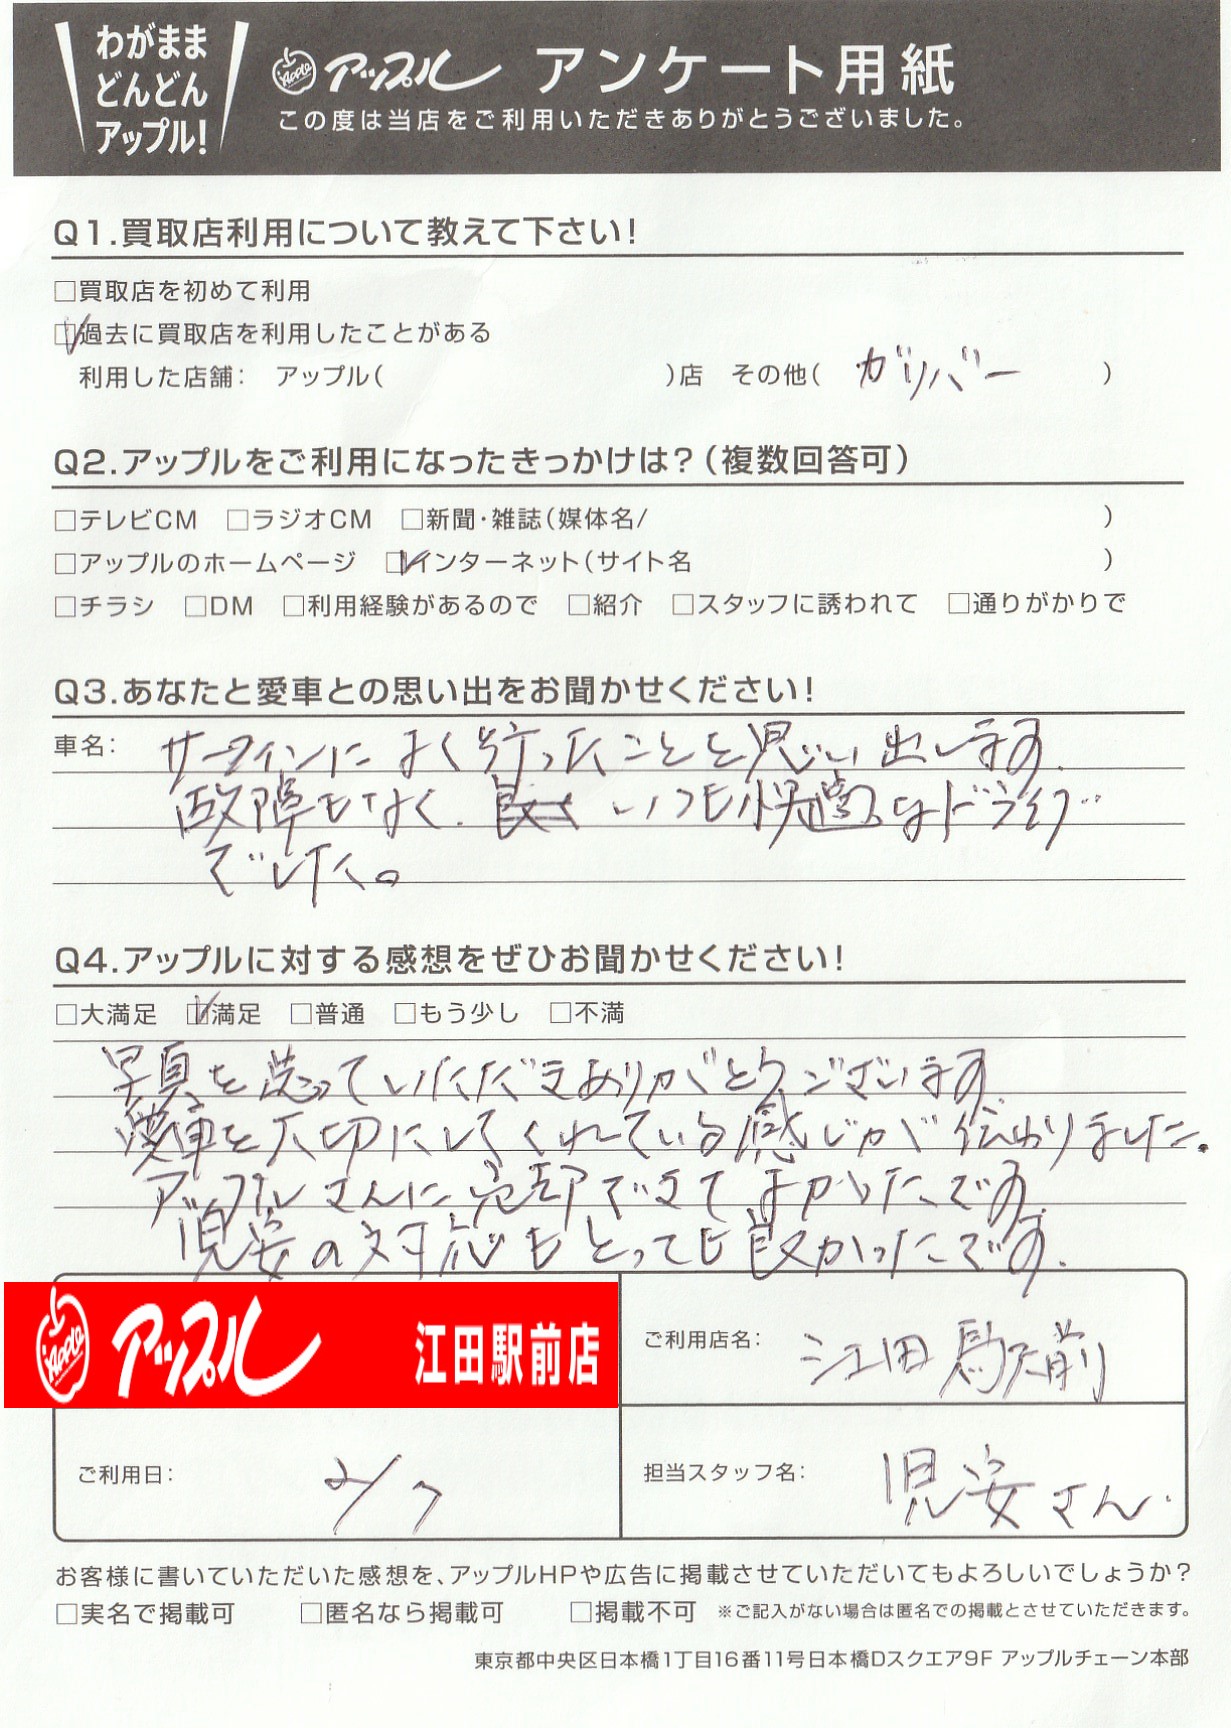 わがまま
どんどん
アップル!
Apple アップル アンケート用紙
この度は当店をご利用いただきありがとうございました。
Q1.買取店利用について教えて下さい!
□買取店を初めて利用
☑過去に買取店を利用したことがある
利用した店舗: アップル( )店 その他( ガリバー )
Q2.アップルをご利用になったきっかけは?(複数回答可)
□テレビCM □ラジオCM □新聞・雑誌(媒体名/ )
□アップルのホームページ ☑インターネット(サイト名 )
□チラシ □DM □利用経験があるので □紹介 □スタッフに誘われて □通りがかりで
Q3.あなたと愛車との思い出をお聞かせください!
車名: サーフィンによく行ったことを思い出します.
故障もなく. いつも快適なドライブ
でした。
Q4.アップルに対する感想をぜひお聞かせください!
□大満足 ☑満足 □普通 □もう少し □不満
写真を洗っていただきありがとうございます.
愛車を大切にしてくれている感じが伝わりました.
アップルさんに売却できてよかったです.
児安の対応もとっても良かったです.
Apple アップル 江田駅前店
ご利用店名: 江田駅前
ご利用日: 2/7
担当スタッフ名: 児安さん.
お客様に書いていただいた感想を、アップルHPや広告に掲載させていただいてもよろしいでしょうか?
□実名で掲載可 □匿名なら掲載可 □掲載不可 ※ご記入がない場合は匿名での掲載とさせていただきます。
東京都中央区日本橋1丁目16番11号日本橋Dスクエア9F アップルチェーン本部